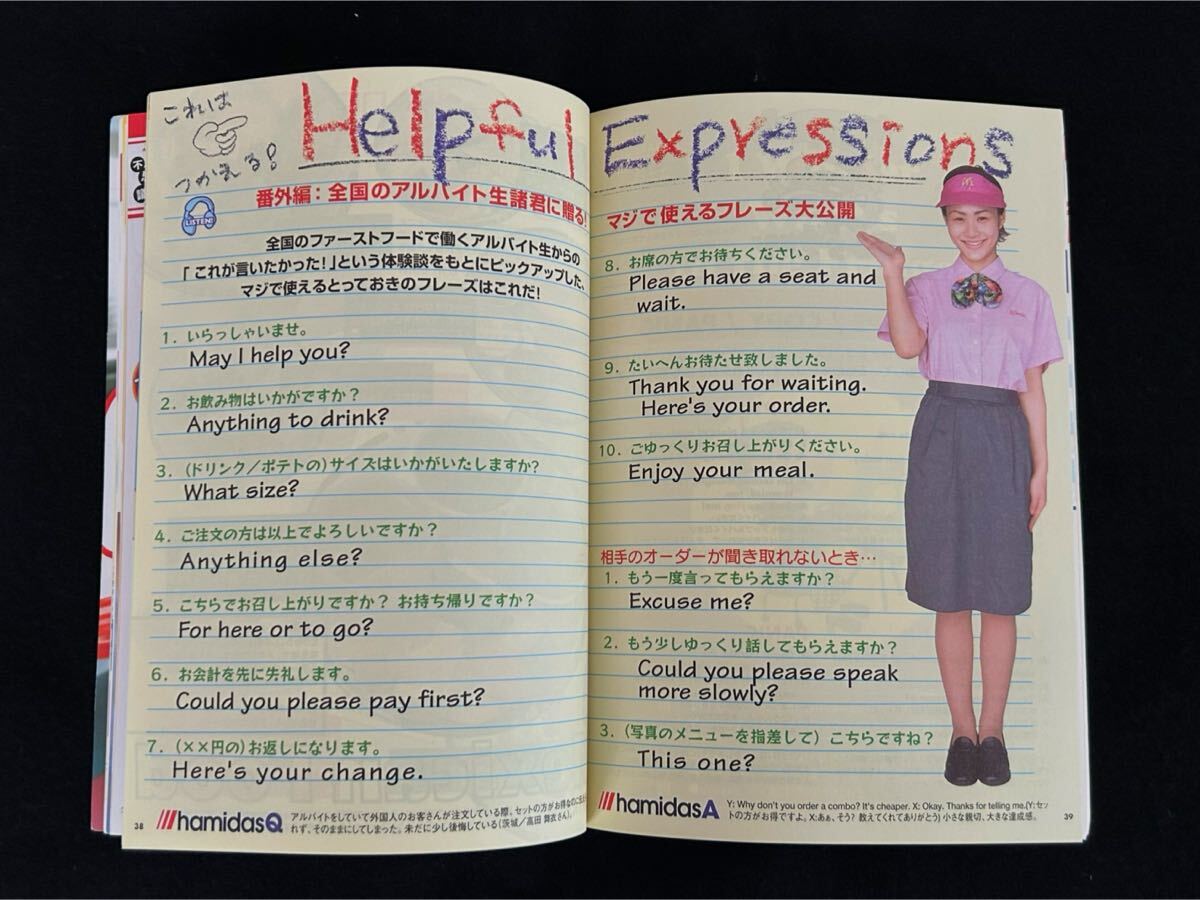 これは
つかえる!
Helpful Expressions
LISTEN!
番外編:全国のアルバイト生諸君に贈る!
マジで使えるフレーズ大公開
全国のファーストフードで働くアルバイト生からの
「これが言いたかった!」という体験談をもとにピックアップした、
マジで使えるとっておきのフレーズはこれだ!
1. いらっしゃいませ。
May I help you?
2. お飲み物はいかがですか?
Anything to drink?
3. (ドリンク/ポテトの)サイズはいかがいたしますか?
What size?
4. ご注文の方は以上でよろしいですか?
Anything else?
5. こちらでお召し上がりですか? お持ち帰りですか?
For here or to go?
6. お会計を先に失礼します。
Could you please pay first?
7. (××円の)お返しになります。
Here's your change.
38
hamidasQ
アルバイトをしていて外国人のお客さんが注文している際。セットの方がお得なのに
れず、そのままにしてしまった。未だに少し後悔している(茨城/高田 舞衣さん)。
8. お席の方でお待ちください。
Please have a seat and
wait.
9. たいへんお待たせ致しました。
Thank you for waiting.
Here's your order.
10. ごゆっくりお召し上がりください。
Enjoy your meal.
相手のオーダーが聞き取れないとき…
1. もう一度言ってもらえますか?
Excuse me?
2. もう少しゆっくり話してもらえますか?
Could you please speak
more slowly?
3. (写真のメニューを指差して)こちらですね?
This one?
hamidasA
Y: Why don't you order a combo? It's cheaper. X: Okay. Thanks for telling me.(Y:セッ
トの方がお得ですよ。X:あぁ、そう? 教えてくれてありがとう) 小さな親切、大きな達成感。
39